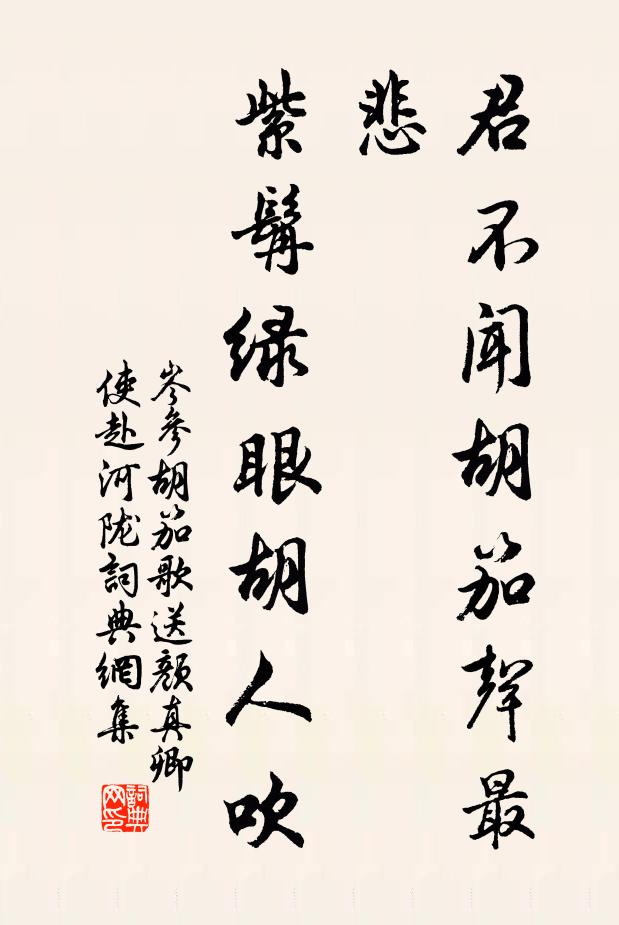 君不闻胡笳聲最
悲
紫髯绿眼胡人吹
岑參胡笳歌送顏真卿
使赴河陇詞典網集
詞典
网印